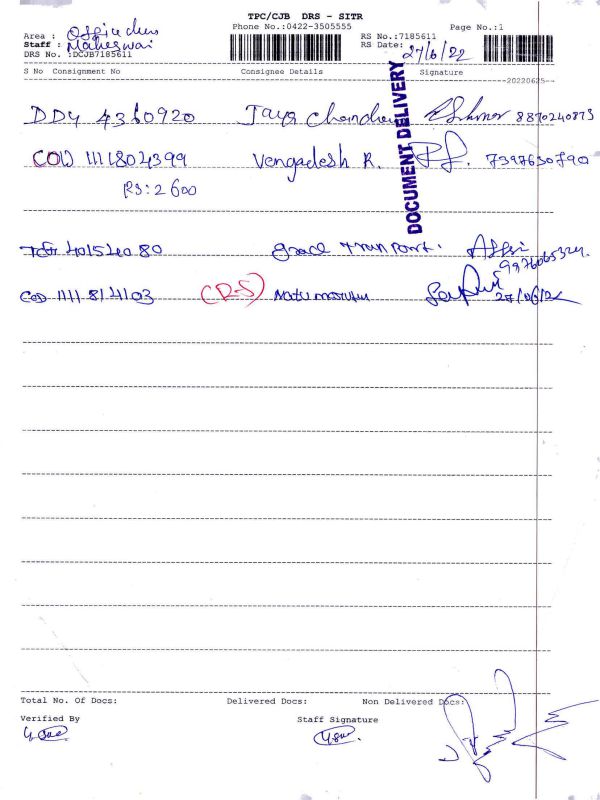 TPC/CJB DRS - SITR
Phone No.:0422-3505555
Page No.:1
Area :
Staff : Maheswari
DRS No. :DCJB7185611
RS No.:7185611
RS Date: 27/6/22
S No Consignment No Consignee Details Signature
--20220625--
DDY 4360920 Jaya Chandran 8870240873
COD 1111804399 Vengadesh R. 7397630790
RS: 2600
DOCUMENT DELIVERY
401540 80 grace transport. 9976065324.
COD 1111814103 (DRS) 27/06/22
Total No. Of Docs: Delivered Docs: Non Delivered Docs:
Verified By Staff Signature